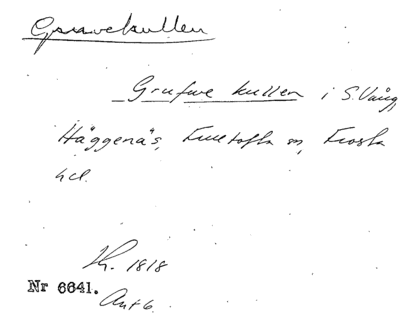 Gruvekullen
Grufwe kullen i S. Vång,
Häggenäs, Fulltofta sn, Frosta
hd.
Lh. 1818
Nr 6641.
Akt 6.